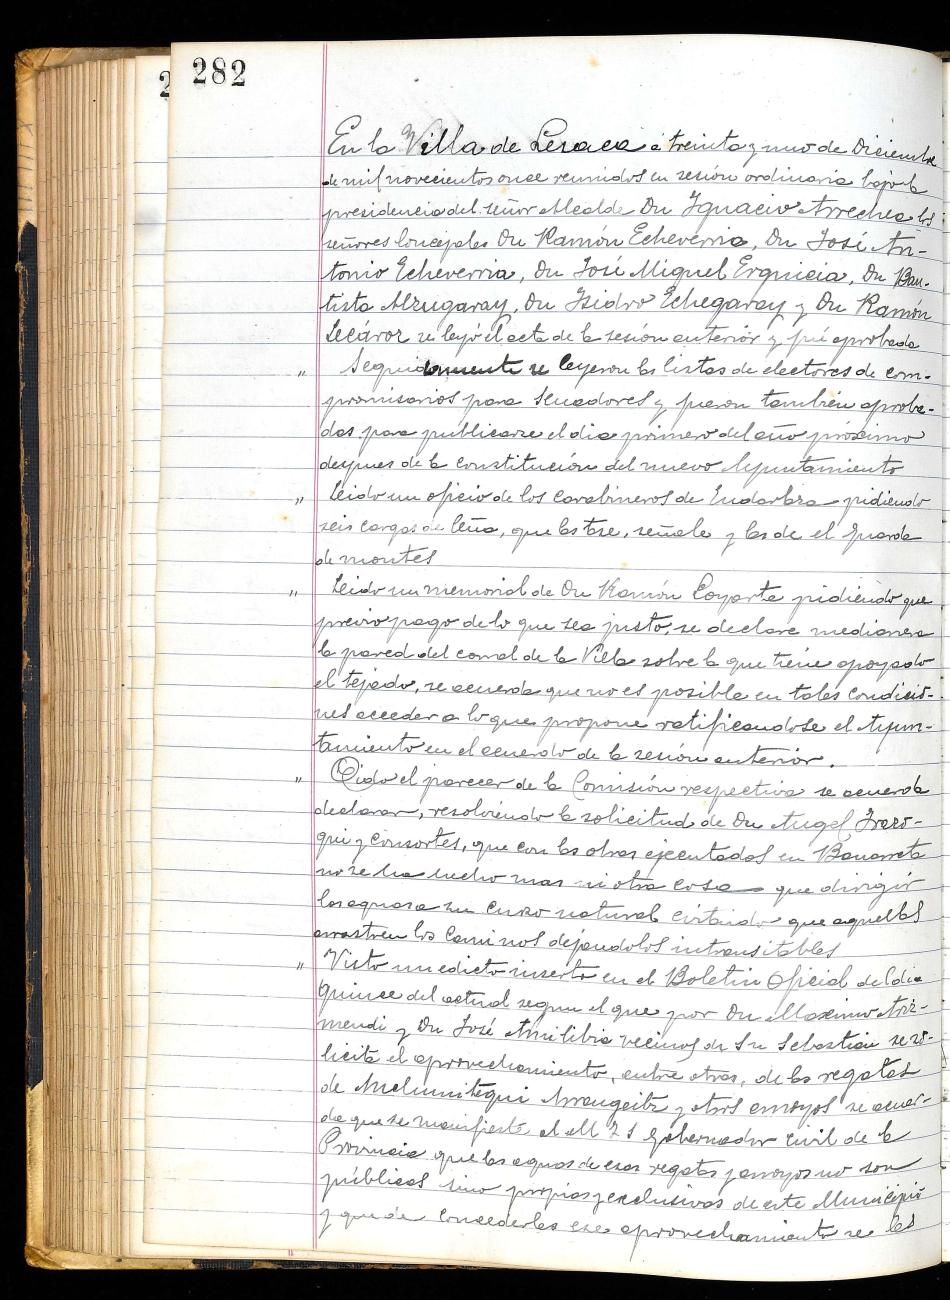 282
En la Villa de Lesaca á treinta y uno de Diciembre
de mil novecientos once reunidos en sesión ordinaria bajo la
presidencia del señor Alcalde Dn Ygnacio Arrechea los
señores Concejales Dn Ramón Echeverria, Dn José An-
tonio Echeverria, Dn José Miguel Erquicia, Dn Bau-
tista Alzugaray, Dn Isidro Echegaray y Dn Ramón
Lecároz se leyó el acta de la sesión anterior y fué aprobada
" Seguidamente se leyeron las listas de electores de com-
promisarios para Senadores y fueron también aproba-
das para publicarse el dia primero del año próximo
despues de la constitución del nuevo Ayuntamiento
" Leido un oficio de los carabineros de Endarlaza pidiendo
seis cargas de leña, que las tase, señale y las de el Guarda
de montes
" Leido un memorial de Dn Ramón Goyarte pidiendo que
previo pago de lo que sea justo, se declare medianera
la pared del corral de la Villa sobre la que tiene apoyado
el tejado, se acuerda que no es posible en tales condicio-
nes acceder a lo que propone ratificandose el Ayun-
tamiento en el acuerdo de la sesión anterior.
" Oido el parecer de la Comisión respectiva se acuerda
declarar, resolviendo la solicitud de Dn Angel Irazo-
qui y consortes, que con las obras ejecutadas en Banarreta
no se ha hecho mas ni otra cosa que dirigir
las aguas a su curso natural evitando que aquellas
arrastren los caminos dejandolos intransitables
" Visto un edicto inserto en el Boletin Oficial del dia
quince del actual segun el que por Dn Maximo Ariz-
mendi y Dn José Amilibia vecinos de Sn Sebastián se so-
licita el aprovechamiento, entre otras, de las regatas
de Arrangeitz y otros arroyos se acuer-
da que se manifieste al M I S Gobernador civil de la
Provincia que las aguas de esas regatas y arroyos no son
públicas sino propias y exclusivas de este Municipio
y que de concederles ese aprovechamiento se les